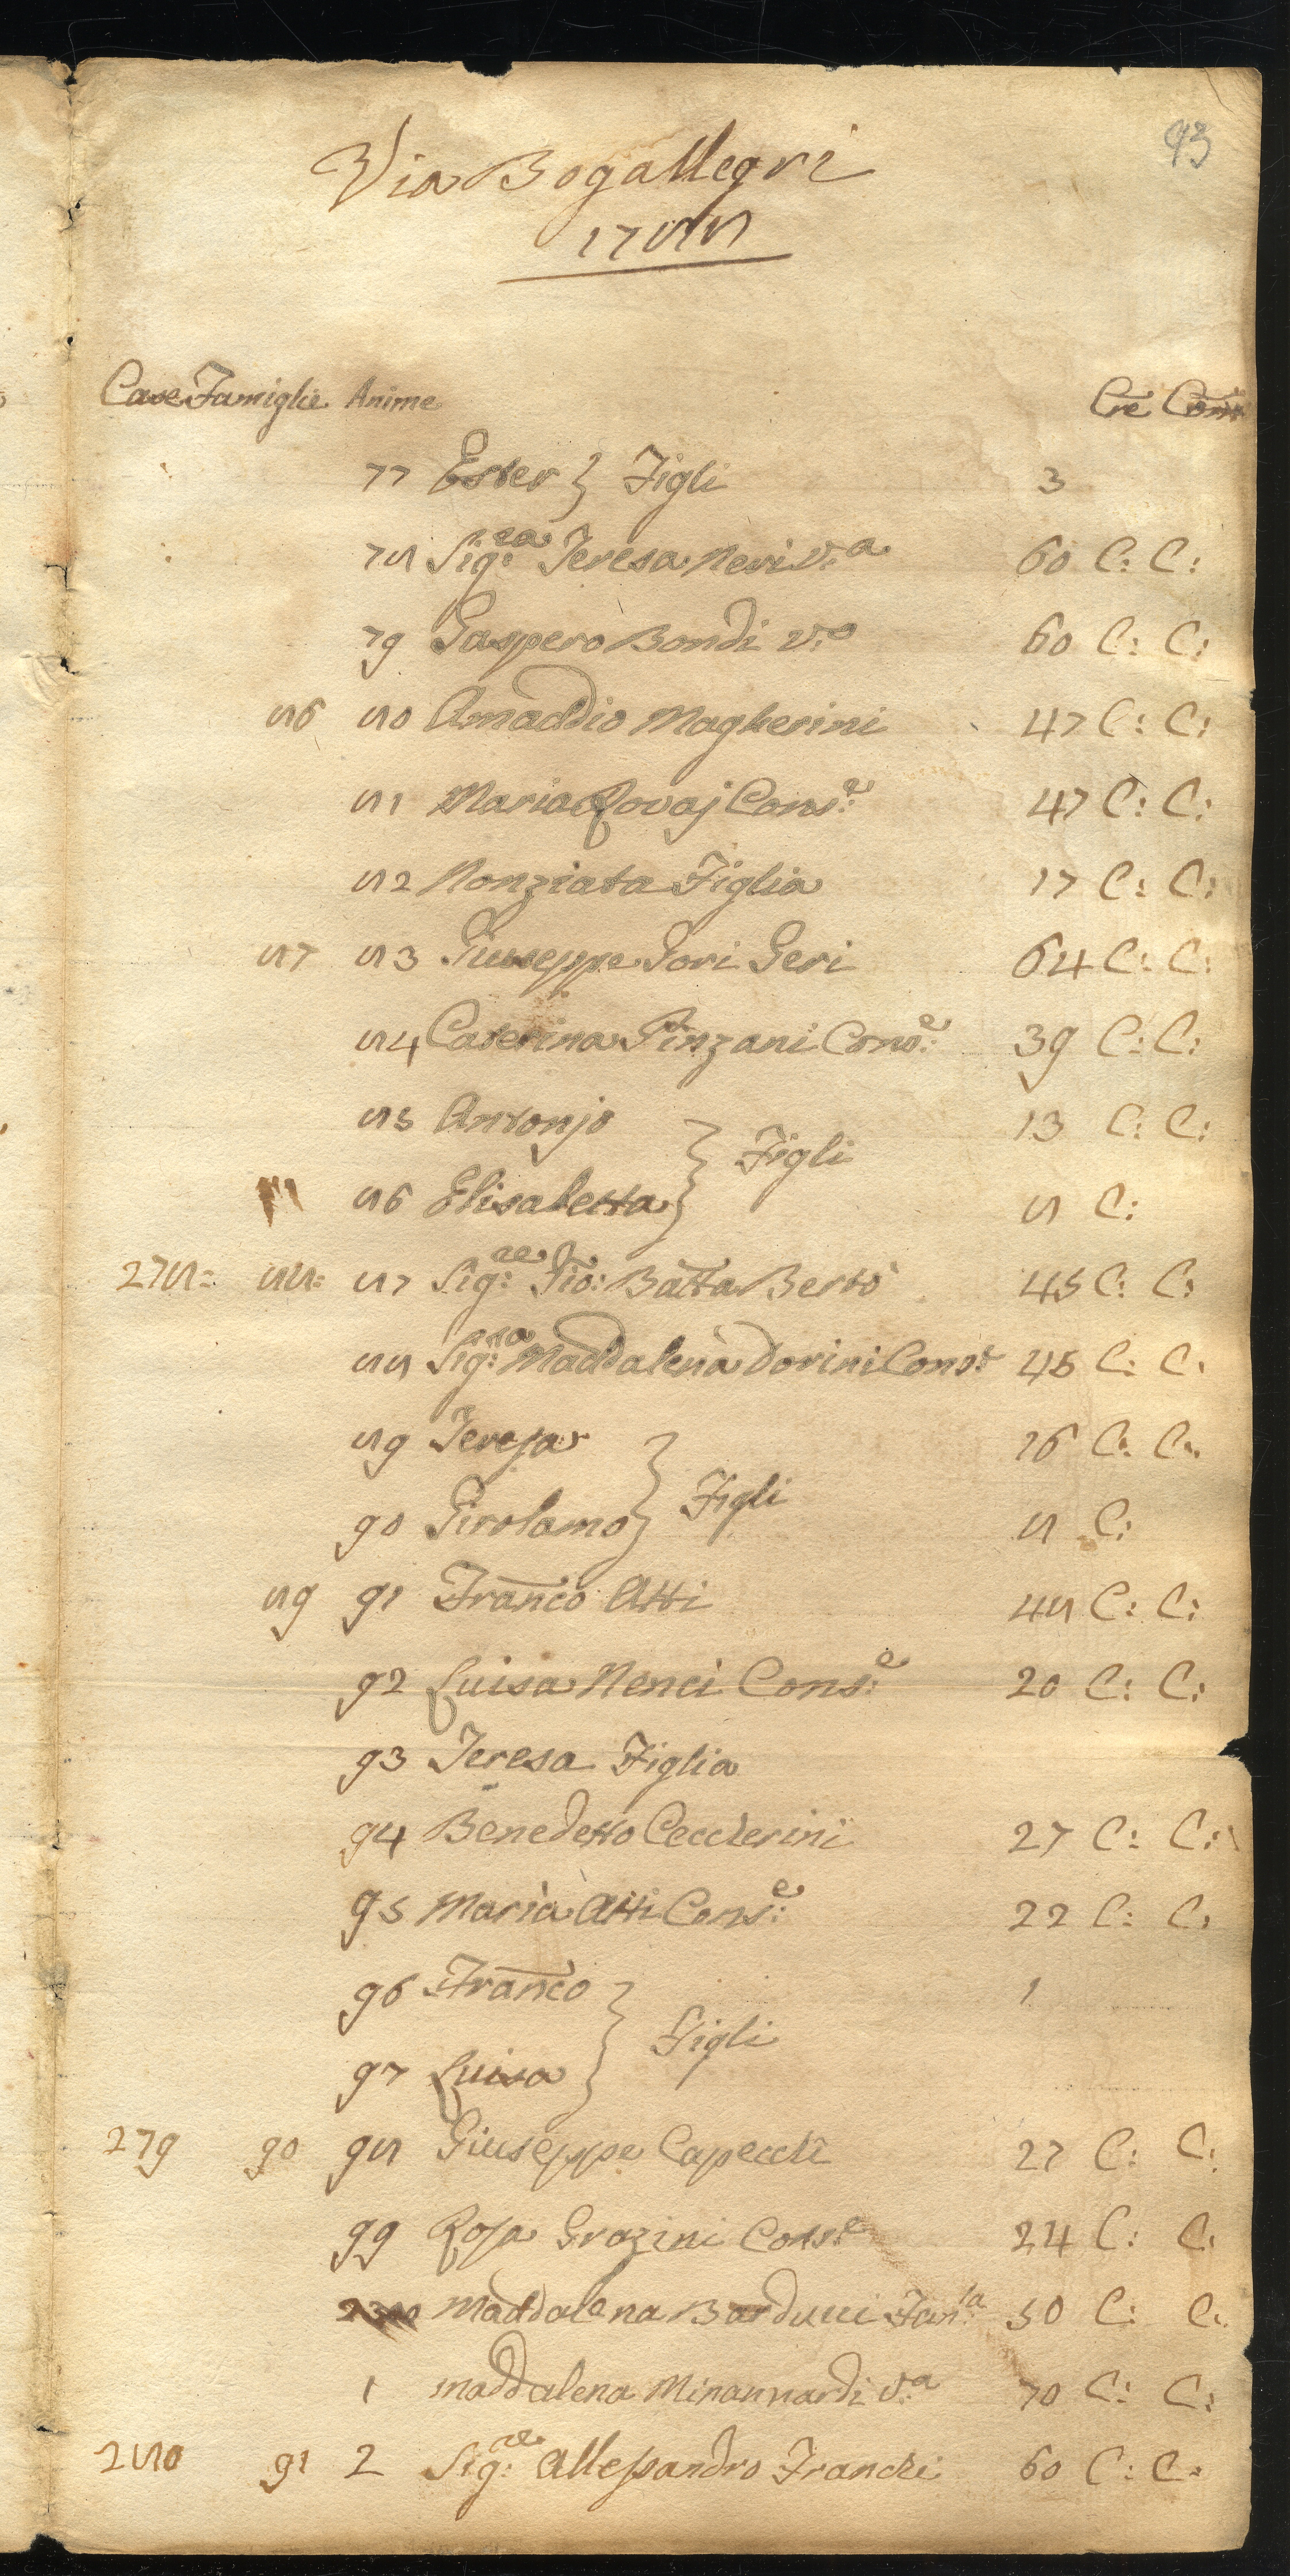 93
Via Bogallegri
1788
Case Famiglie Anime Cre Com
77 Ester } Figli 3
78 Sig:ra Teresa Neri V:a 60 C: C:
79 Gaspero Bondi v:o 60 C: C:
86 80 Amaddio Magherini 47 C: C:
81 Maria Rovaj Cons:e 47 C: C:
82 Nonziata Figlia 17 C: C:
87 83 Giuseppe Gori Geri 64 C: C:
84 Caterina Pinzani Cons:e 39 C: C:
85 Antonjo 13 C: C:
} Figli
86 Elisabetta 8 C:
278= 88= 87 Sig:re Gio: Batta Berto 45 C: C:
88 Sig:ra Maddalena Dorini Cons:e 45 C: C:
89 Teresa 16 C: C:
} Figli
90 Girolamo 8 C:
89 91 Franco Atti 48 C: C:
92 Luisa Nenci Cons:e 20 C: C:
93 Teresa Figlia
94 Benedetto Ceccherini 27 C: C:
95 Maria Atti Cons:e 22 C: C:
96 Franco 1
} Figli
97 Luisa
279 90 98 Giuseppe Capecchi 27 C: C:
99 Rosa Grazini Cons:e 24 C: C:
Maddalena Barducci Fan:la 50 C: C:
1 maddalena Minannardi V:a 70 C: C:
280 91 2 Sig:re Allessandro Franchi 60 C: C: